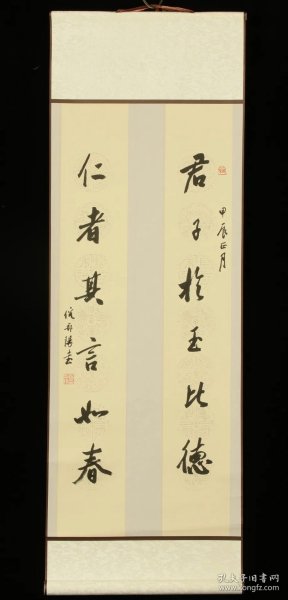 君子於玉比德
甲辰正月
仁者其言如春
孔夫子旧书网
www.kongfz.com